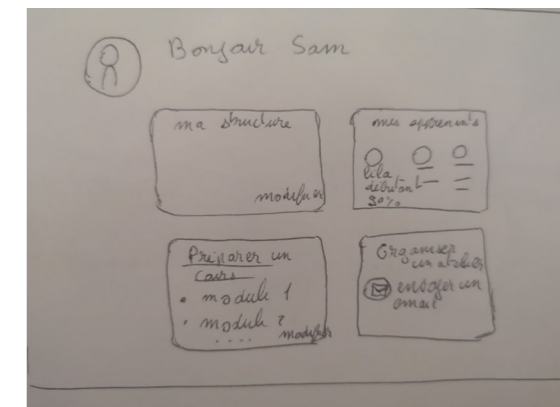 Bonjour Sam
ma structure
modifier
mes apprenants
lila
débutan
30%
Préparer un
cours
• module 1
• module 2
....
modifier
Organiser
un atelier
envoyer un
email